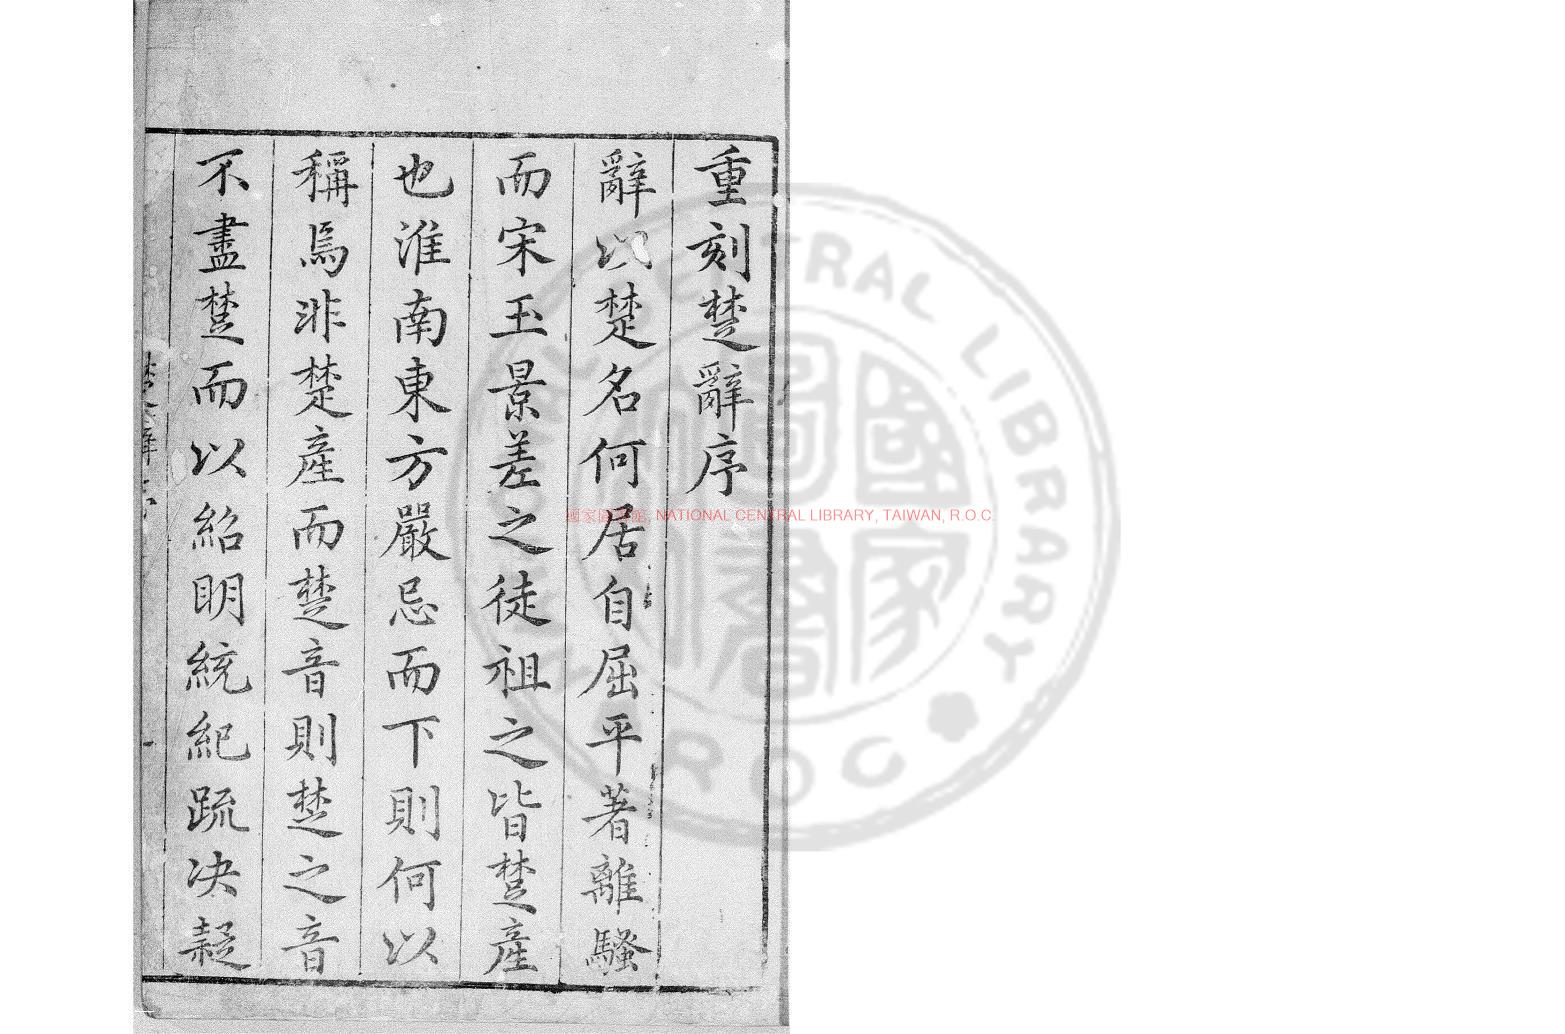 重刻楚辭序
辭以楚名何居自屈平著離騷
而宋玉景差之徒祖之皆楚產
也淮南東方嚴忌而下則何以
稱焉非楚產而楚音則楚之音
不盡楚而以紹明統紀疏决疑
國家圖書館, NATIONAL CENTRAL LIBRARY, TAIWAN, R.O.C.